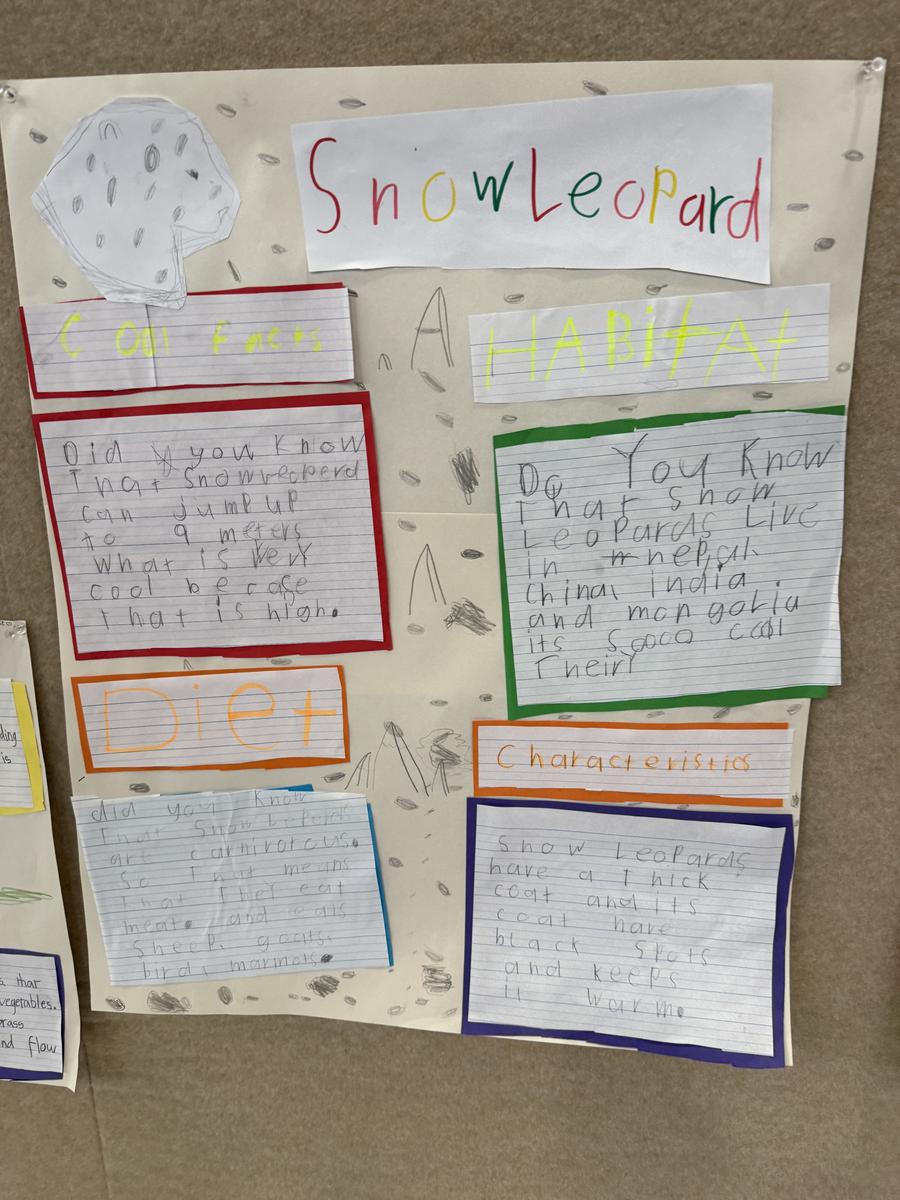 SnowLeopard
Cool Facts
Did you know
That Snowleoperd
can jump up
to 9 meters
what is very
cool becase
that is high.
HABitAt
Do You Know
That Snow
Leopards Live
in nepal.
China, india
and mongolia
its soooo cool
Their
Diet
did you know
That Snow Leopards
are carnivorous.
So that means
that they eat
meat. and eats
Sheep, goats.
bird, marmots.
Characteristics
Snow Leopards
have a Thick
coat and its
coat have
black spots
and keeps
it warm.
ding
is
s that
vegetables.
rass
nd flow